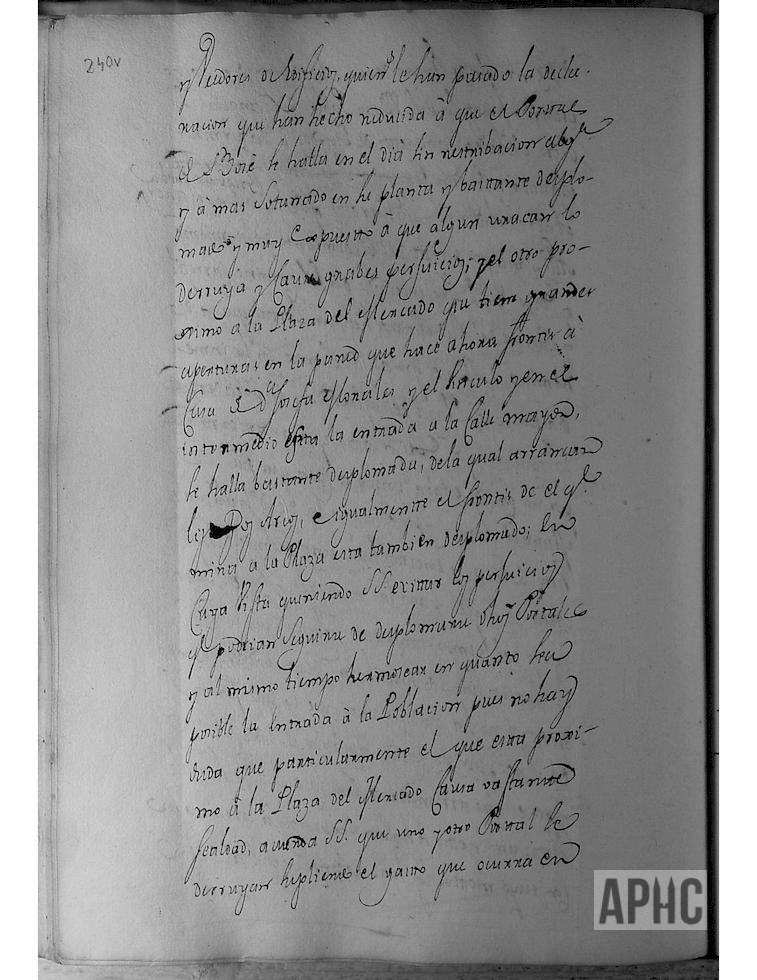 240v
y Veedores de Edificios, quienes le han pasado la decla-
racion que han hecho reducida à que el Portal
de Sn. Josè se halla en el dia sin retribacion alga.
y à mas Soturado en su planta y bastante desplo-
mado y muy Expuesto à que algun uracan lo
derruya y Cause grabes perjuicios; y el otro pro-
ximo a la Plaza del Mercado que tiene grandes
aperturas en la pared que hace ahora frontis à
Casa de da. Josefa Morales y el Siculo y en el
intermedio esta la entrada a la Calle mayor,
se halla bastante desplomada, de la qual arrancan
los Arcos, e igualmente el frontis de el qe.
mira a la Plaza esta tambien desplomado; En
Cuya Vista queriendo S.S. evitar los perjuicios
qe. podrian Seguirse de desplomarse dhos. Portales
y al mismo tiempo hermosear en quanto sea
posible la entrada à la Poblacion pues no hay
duda que particularmente el que esta proxi-
mo à la Plaza del Mercado Causa vastante
fealdad, acuerda S.S. que uno y otro Portal se
derruyan supliendo el gasto que ocurra en
APHC